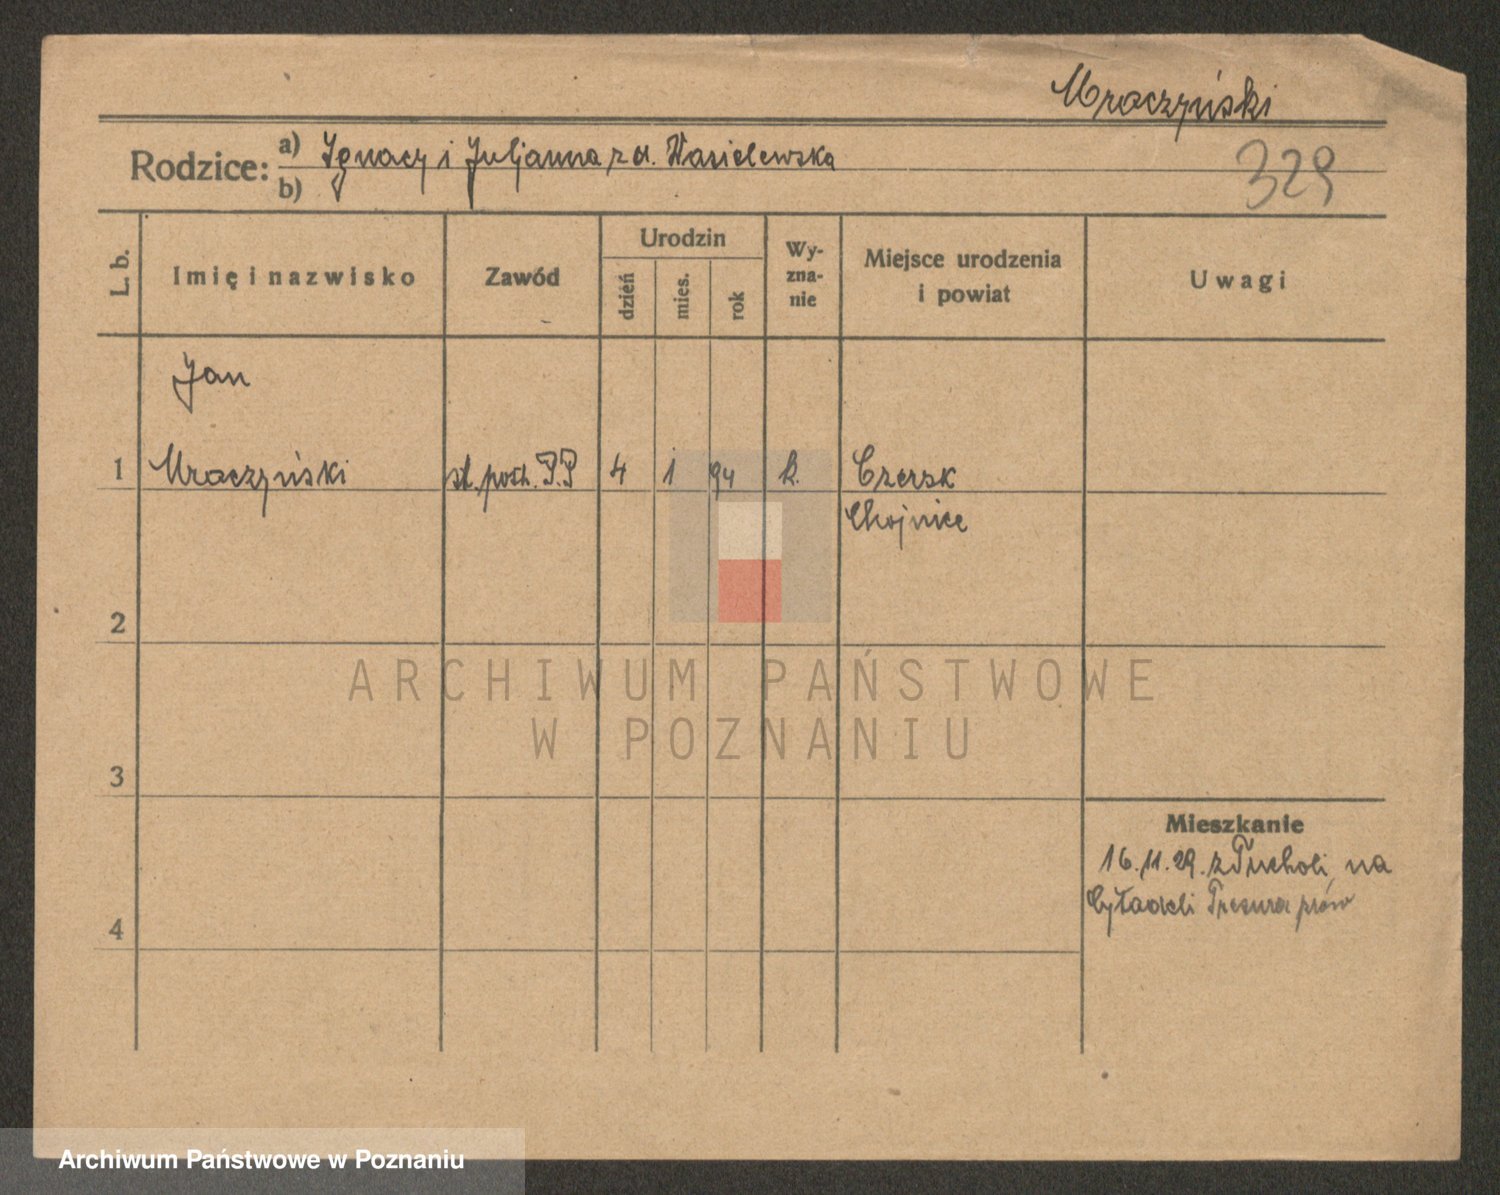 Mroczyński
Rodzice: a) Ignacy i Juljanna z d. Wasielewska
b)
329
L. b.
Imię i nazwisko
Zawód
Urodzin
dzień
mies.
rok
Wy-
zna-
nie
Miejsce urodzenia
i powiat
Uwagi
Jan
1 Mroczyński st. post. P.P 4 1 94 k. Czersk
Chojnice
2
3
4
Mieszkanie
16.11.29. z Tucholi na
Cytadeli Tresura psów
ARCHIWUM PAŃSTWOWE
W POZNANIU
Archiwum Państwowe w Poznaniu